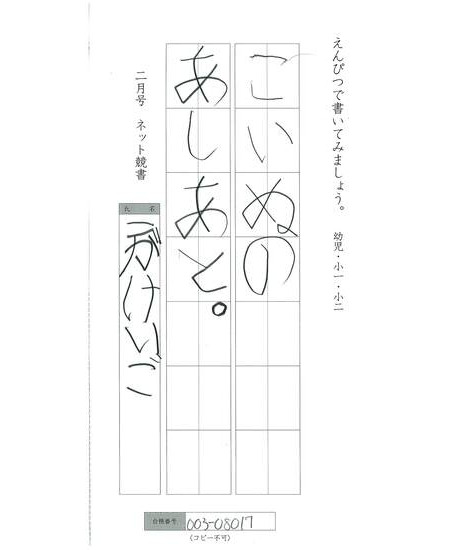 えんぴつで書いてみましょう。 幼児・小一・小二
こいぬの
あしあと。
二月号 ネット競書
003-08017
(コピー不可)